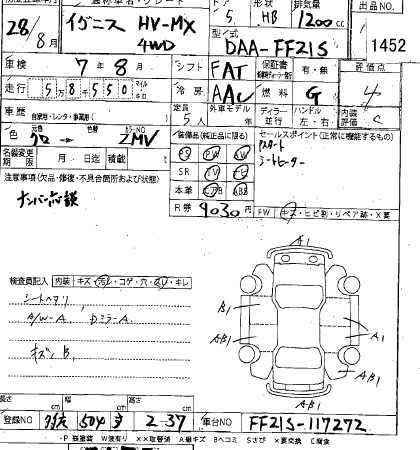 ドア 形状 排気量 出品NO
28/8月 イグニス HV-MX 5 HB 1200cc
4WD 型式 DAA-FF21S 1452
車検 7年8月 シフト FAT 保証書 有・無 評価点
走行 58550 マイル キロ 冷房 AAC 燃料 G 4
車歴 自家用・レンタ・事業用 定員 5人 外車モデル ディーラー 並行 ハンドル 左・右 内装評価 C
色 元色 クロ → 色替 カラーNO ZMV 装備品(純正品に限る) セールスポイント(正常に機能するもの)
名義変更期限 月 日迄 積載 t PS PW AW Pスタート
SR TV ナビ シートヒーター
注意事項(欠品・修復・不具合箇所および状態) 本革 エアB ABS
ナンバー応談 R券 9030円 FW キズ・ヒビ割・リペア跡・X要
A1
検査員記入 内装 キズ・汚レ・コゲ・穴・スレ・キレ
シートヘタリ B1
A/W-A. DミラーA. A1
AB1
キズ、B. AB1
AB1
長さ cm 幅 cm 高さ cm
登録NO 504 2-37 車台NO FF21S-117272
P 要塗装 W 波有り XX取替済 A 線キズ Bヘコミ Sさび ×要交換 C腐食